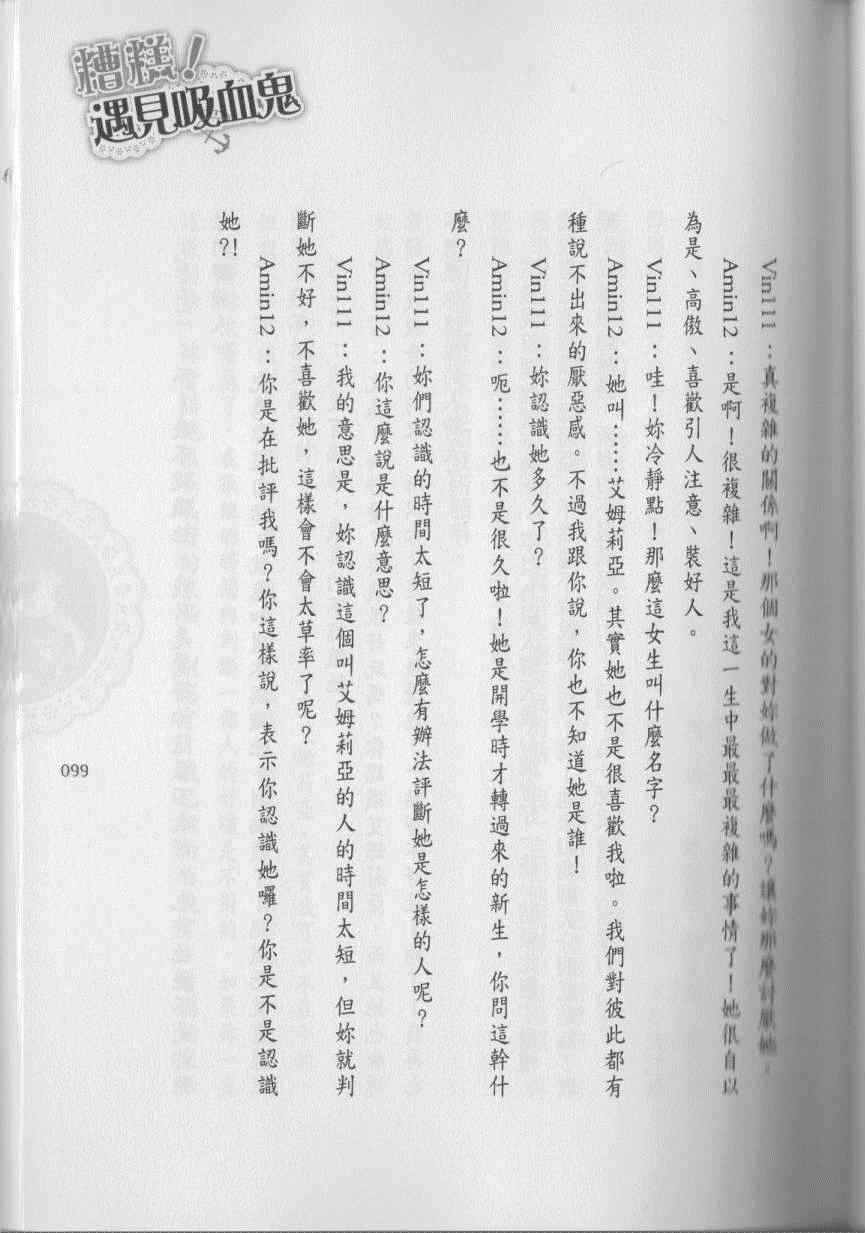 糟糕！
遇見吸血鬼
Vin111：真複雜的關係啊！那個女的對妳做了什麼嗎？讓妳那麼討厭她。
Amin12：是啊！很複雜！這是我這一生中最最最複雜的事情了！她很自以
為是、高傲、喜歡引人注意、裝好人。
Vin111：哇！妳冷靜點！那麼這女生叫什麼名字？
Amin12：她叫……艾姆莉亞。其實她也不是很喜歡我啦。我們對彼此都有
種說不出來的厭惡感。不過我跟你說，你也不知道她是誰！
Vin111：妳認識她多久了？
Amin12：呃……也不是很久啦！她是開學時才轉過來的新生，你問這幹什
麼？
Vin111：妳們認識的時間太短了，怎麼有辦法評斷她是怎樣的人呢？
Amin12：你這麼說是什麼意思？
Vin111：我的意思是，妳認識這個叫艾姆莉亞的人的時間太短，但妳就判
斷她不好，不喜歡她，這樣會不會太草率了呢？
Amin12：你是在批評我嗎？你這樣說，表示你認識她囉？你是不是認識
她?!
099